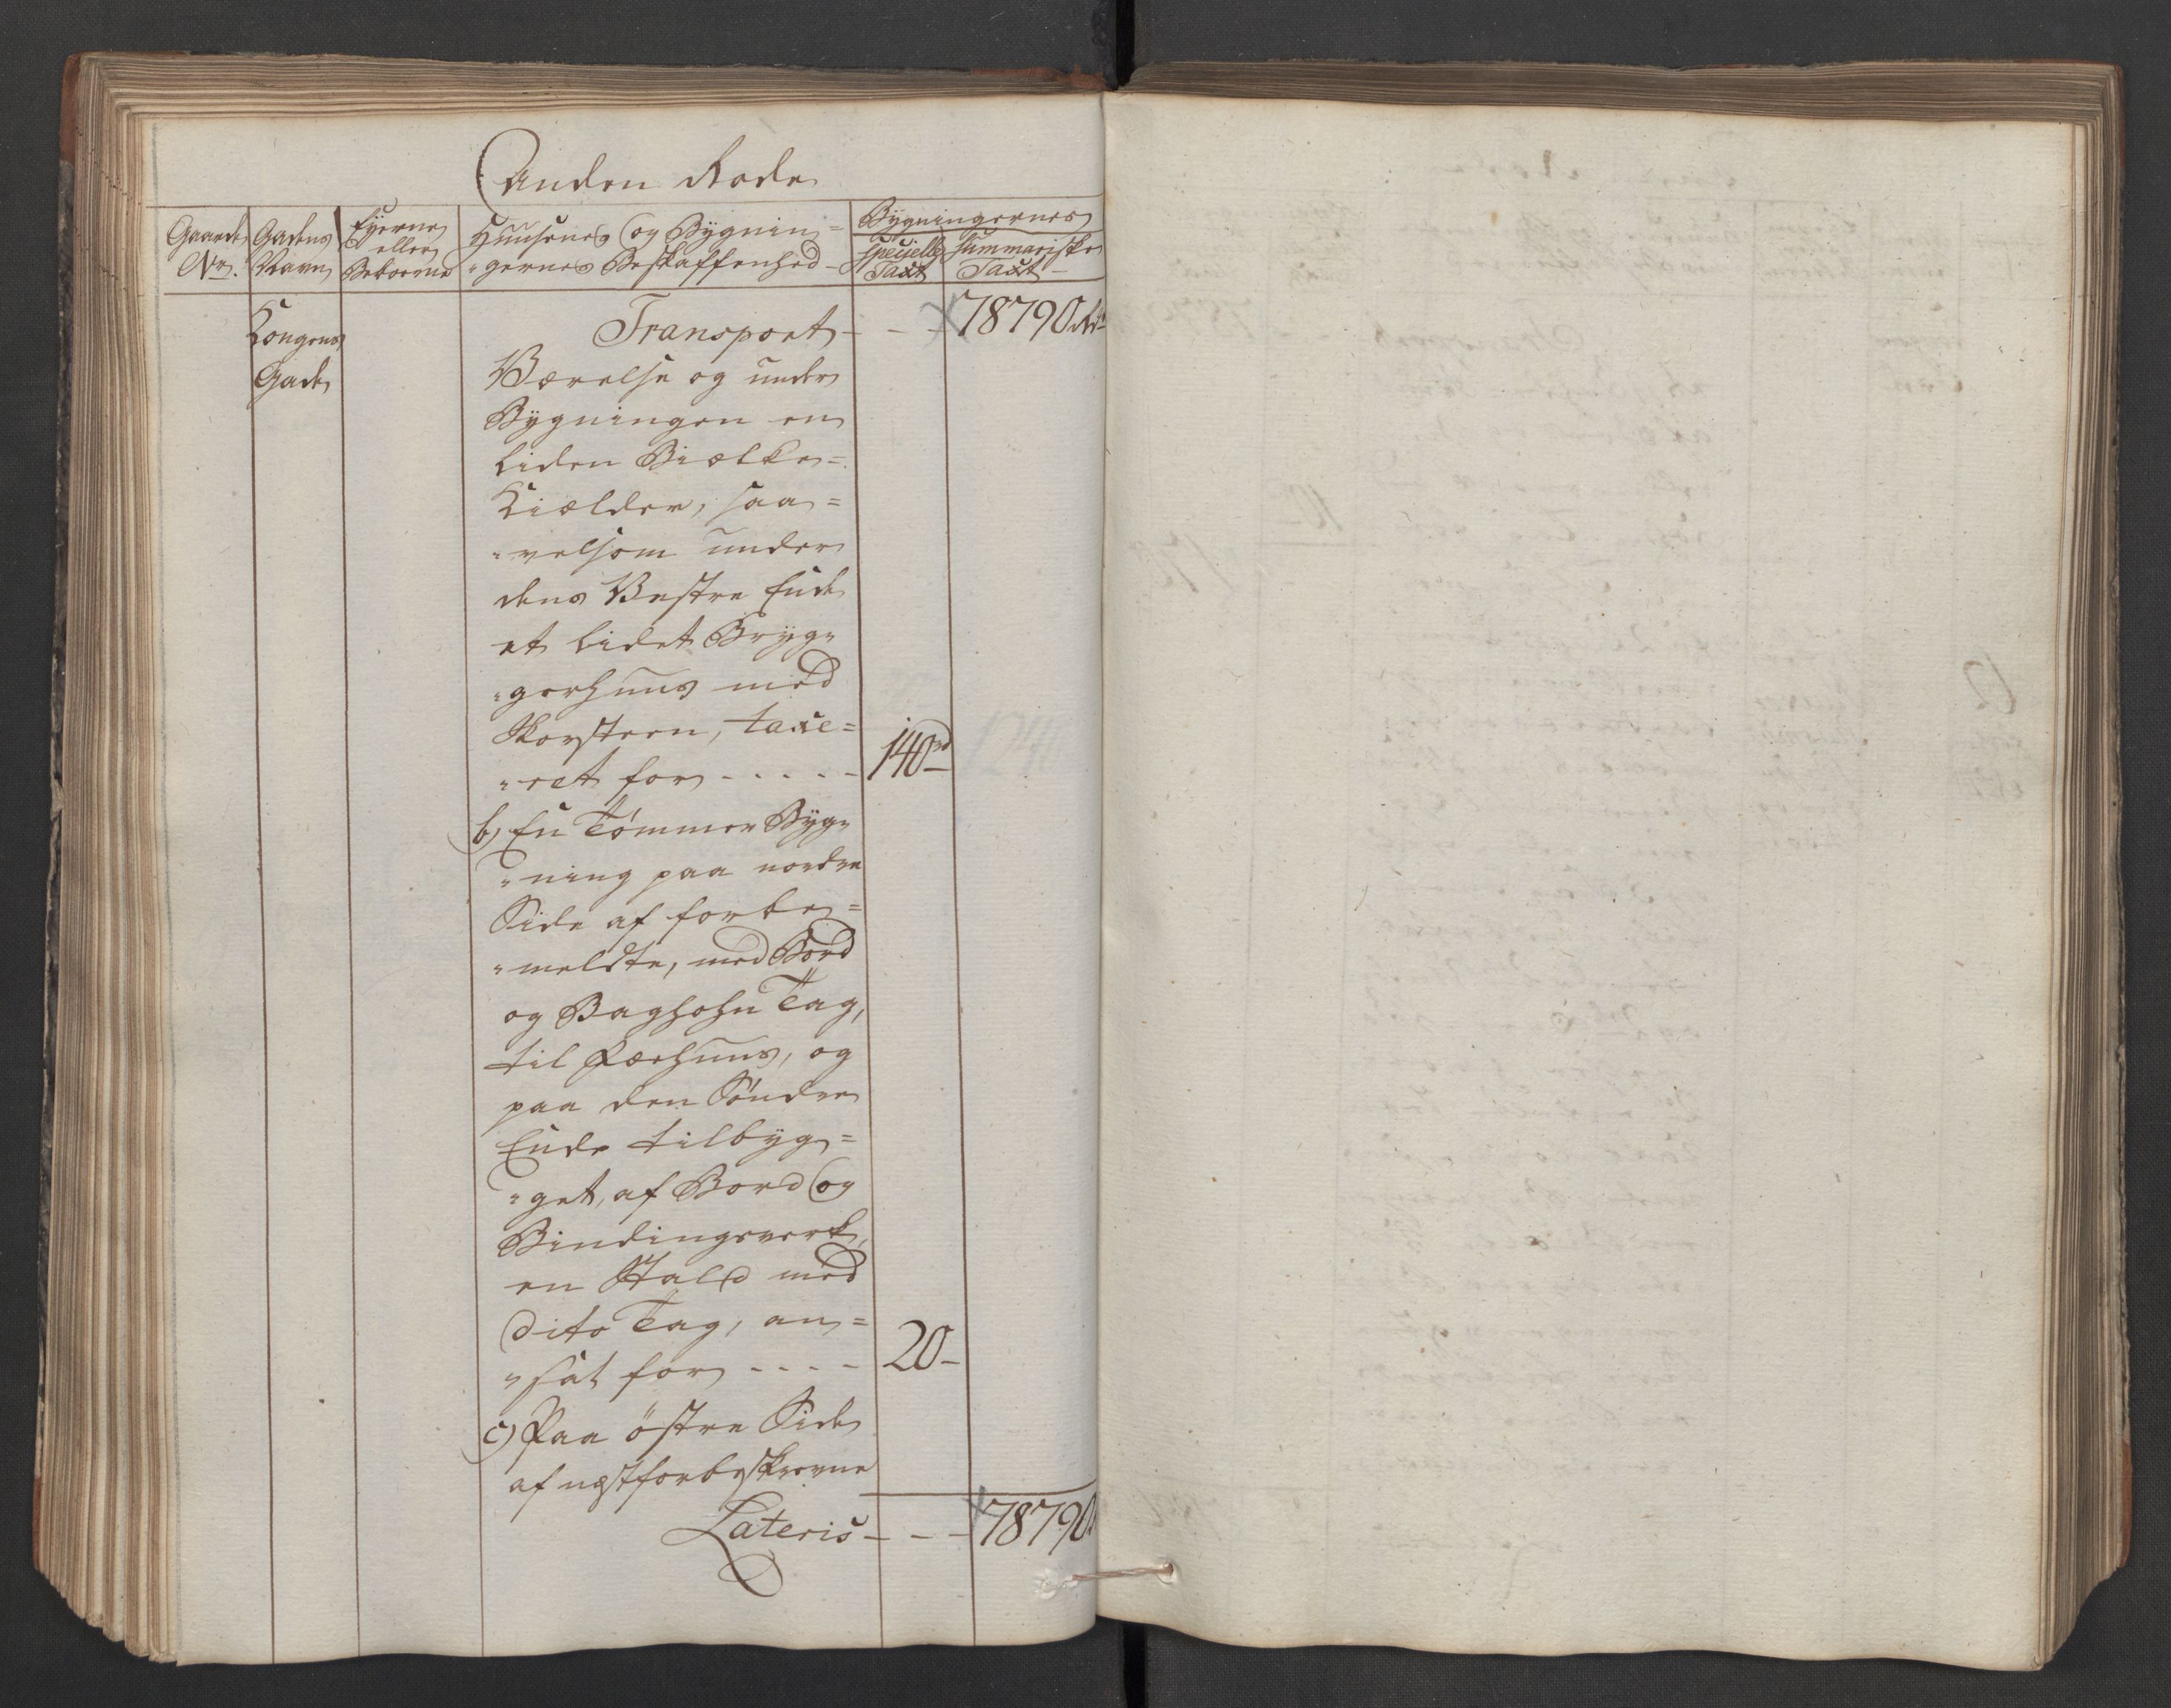 Anden Rode
Gaards Nr. Gadens Navn Eyerne eller Beboerne Huusenes og Bygnin= "gernes Beskaffenhed Bygningernes Specielle Taxt Summariske Taxt
Kongens Transport - - - 78790 Rd
Gade Værelse og under
Bygningen en
liden Biælke=
Kiælder, saa=
"velsom under
dens Vestre Ende
et lidet Bryg=
"gerhuus med
Skorsteen, taxe=
"ret for - - - - - 140 rd
b) En Tømmer Byg=
"ning paa nordre
Side af forbe=
"meldte, med Bord
og Baghohn Tag,
til Færhuus, og
paa den Söndre
Ende tilbyg=
"get, af Bord og
Bindingsverk,
en Stald med
dito Tag, an=
"sat for - - - - 20 -
c) Paa östre Side
af næstforbeskrevne
Lateris - - - 78790